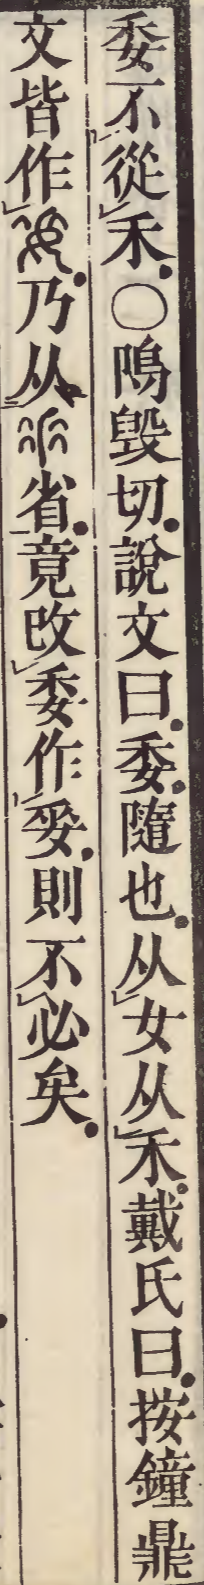 委不從禾。○鳴毀切。說文曰。委。隨也。从女从禾。戴氏曰。按鐘鼎
文皆作。乃从省。竟改委作㛂。則不必矣。